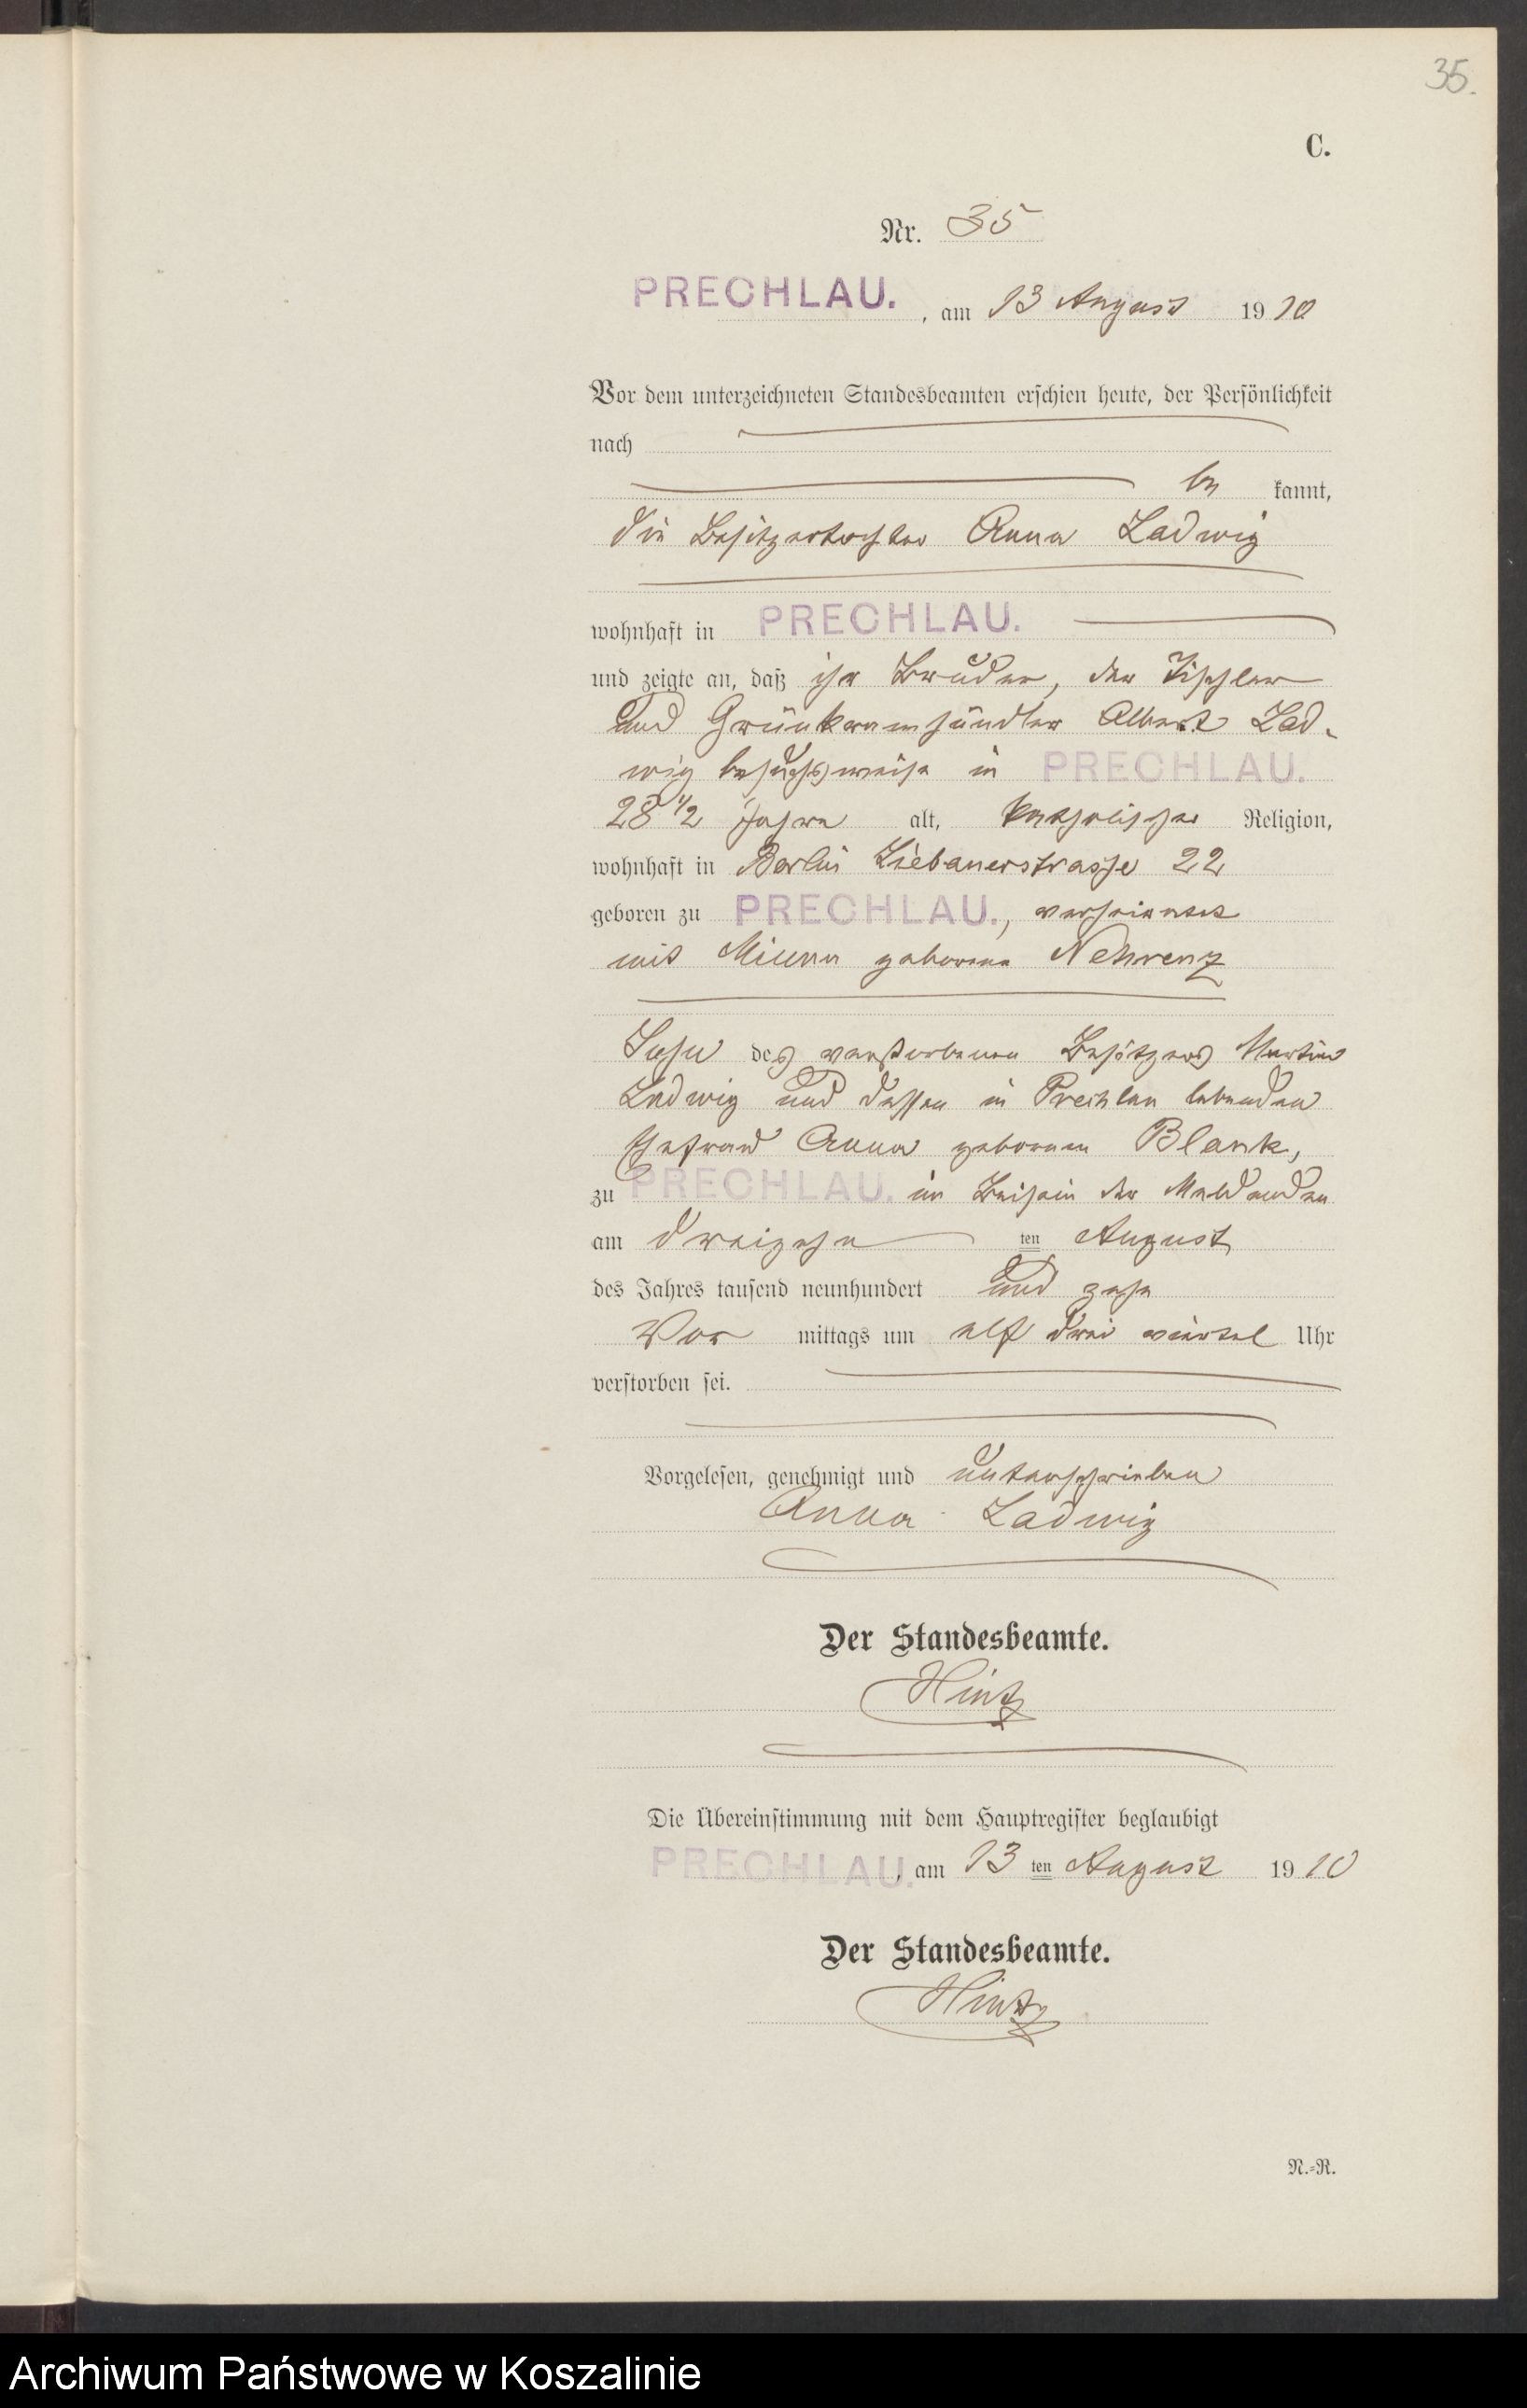 35.
C.
Nr. 35
PRECHLAU. , am 13 August 1910
Vor dem unterzeichneten Standesbeamten erschien heute, der Persönlichkeit
nach
be kannt,
die Besitzertochter Anna Ladwig
wohnhaft in PRECHLAU.
und zeigte an, daß ihr Bruder, der Tischler
und Grünkramhändler Albert Lad-
wig besuchsweise in PRECHLAU.
28 1/2 Jahre alt, katholischer Religion,
wohnhaft in Berlin Liebauerstrasse 22
geboren zu PRECHLAU., verheiratet
mit Minna geborene Nehrenz
Sohn des verstorbenen Besitzers Martin
Ladwig und dessen in Prechlau lebenden
Ehefrau Anna geborenen Blank,
zu PRECHLAU. im Beisein der Meldenden
am dreizehn ten August
des Jahres tausend neunhundert und zehn
Vor mittags um elf drei viertel Uhr
verstorben sei.
Vorgelesen, genehmigt und unterschrieben
Anna Ladwig
Der Standesbeamte.
Hintz
Die Übereinstimmung mit dem Hauptregister beglaubigt
PRECHLAU. , am 13 ten August 1910
Der Standesbeamte.
Hintz
N.-R.
Archiwum Państwowe w Koszalinie